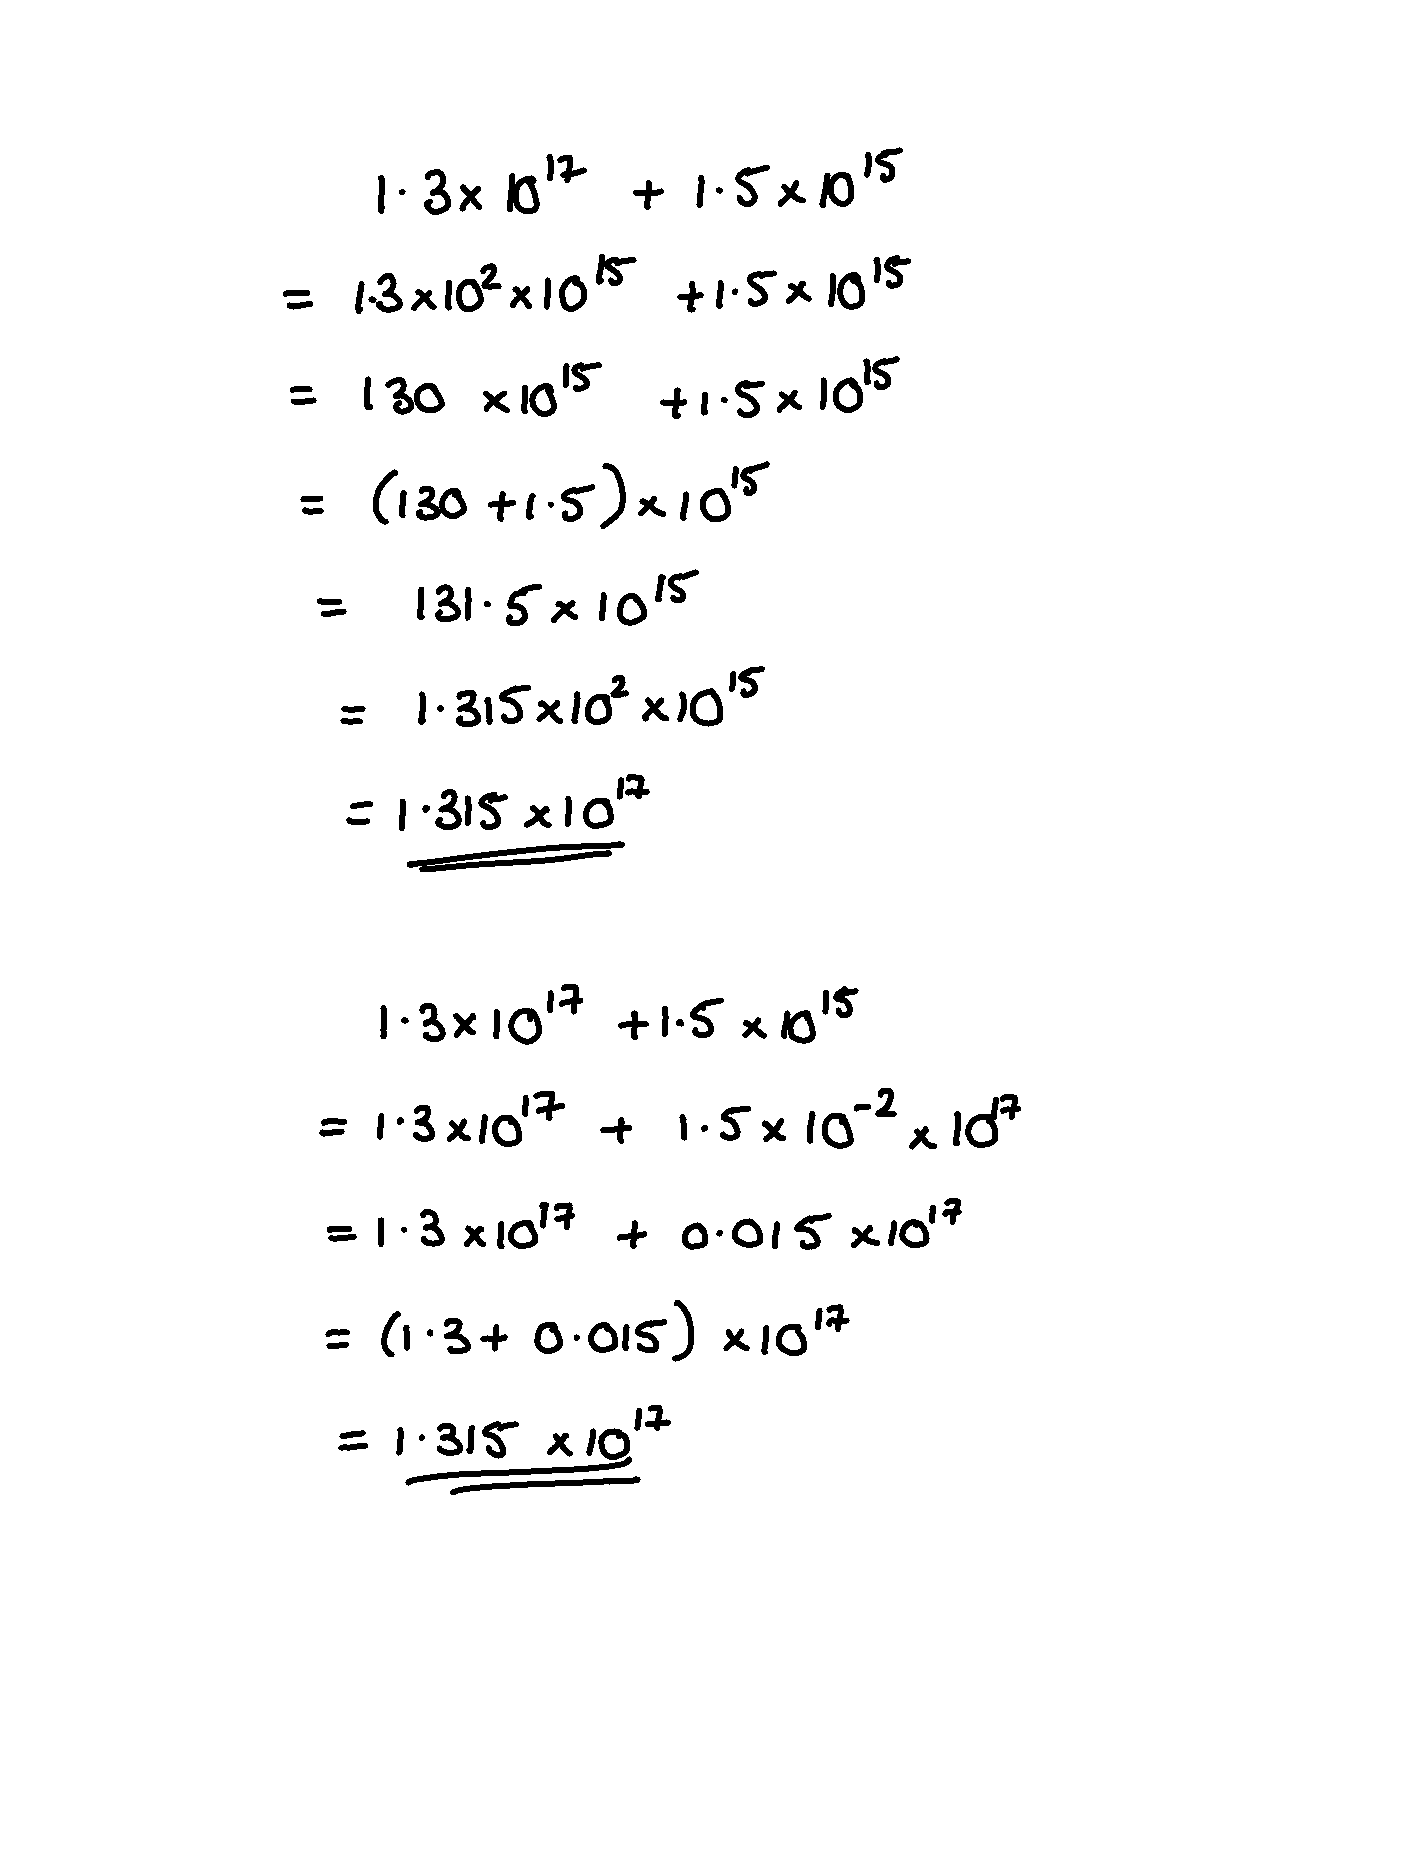 1·3 × 10¹⁷ + 1·5 × 10¹⁵
= 1·3 × 10² × 10¹⁵ + 1·5 × 10¹⁵
= 130 × 10¹⁵ + 1·5 × 10¹⁵
= (130 + 1·5) × 10¹⁵
= 131·5 × 10¹⁵
= 1·315 × 10² × 10¹⁵
= 1·315 × 10¹⁷
1·3 × 10¹⁷ + 1·5 × 10¹⁵
= 1·3 × 10¹⁷ + 1·5 × 10⁻² × 10¹⁷
= 1·3 × 10¹⁷ + 0·015 × 10¹⁷
= (1·3 + 0·015) × 10¹⁷
= 1·315 × 10¹⁷